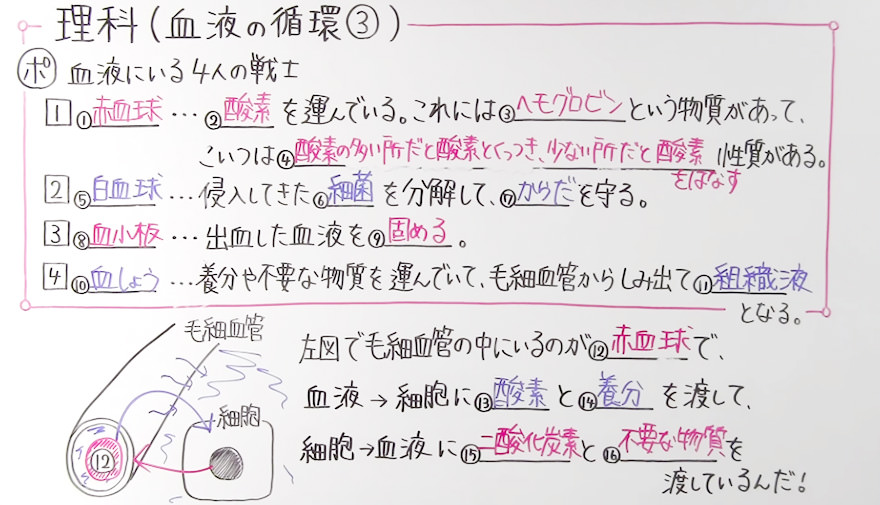 理科(血液の循環③)
ポ 血液にいる4人の戦士
1 ①赤血球…②酸素を運んでいる。これには③ヘモグロビンという物質があって、
こいつは④酸素の多い所だと酸素とくっつき、少ない所だと酸素をはなす性質がある。
2 ⑤白血球…侵入してきた⑥細菌を分解して、⑦からだを守る。
3 ⑧血小板…出血した血液を⑨固める。
4 ⑩血しょう…養分や不要な物質を運んでいて、毛細血管からしみ出て⑪組織液
となる。
毛細血管
細胞
⑫
左図で毛細血管の中にいるのが⑫赤血球で、
血液→細胞に⑬酸素と⑭養分を渡して、
細胞→血液に⑮二酸化炭素と⑯不要な物質を
渡しているんだ!